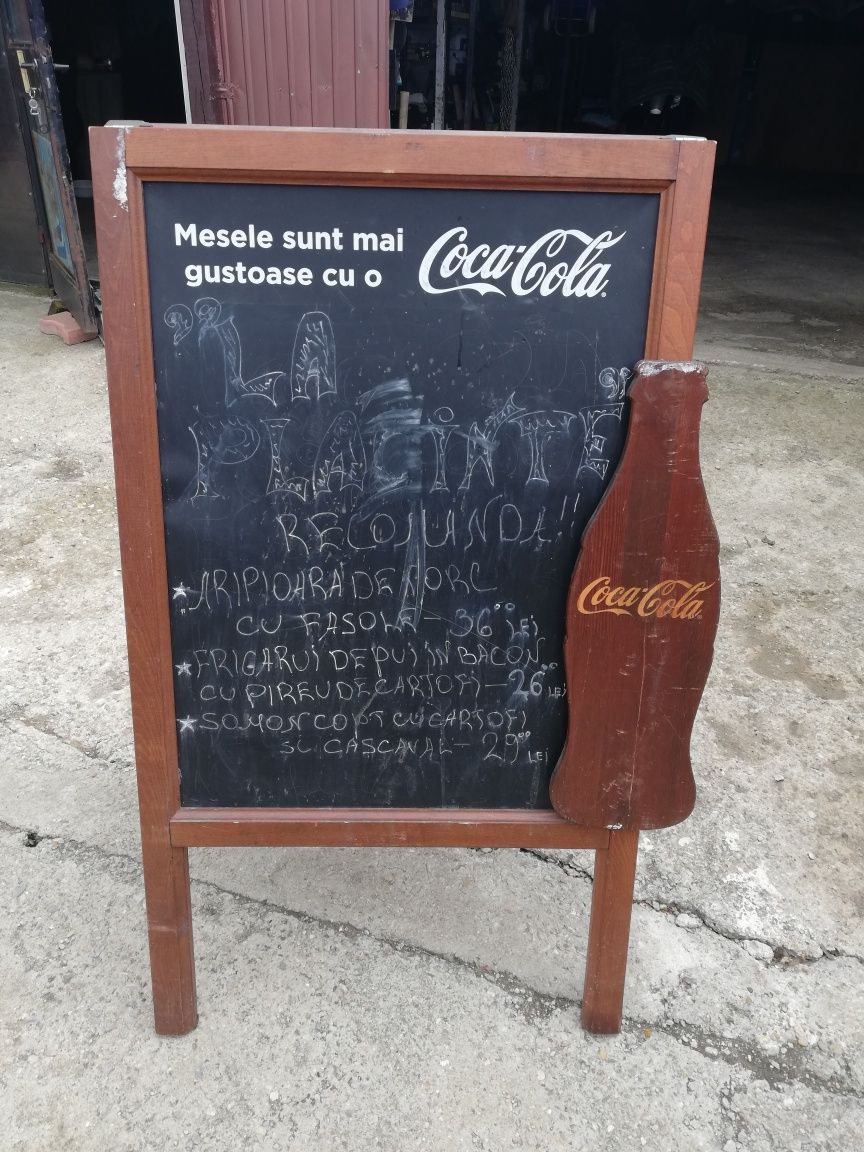 Mesele sunt mai
gustoase cu o
Coca-Cola
"LA
PLACINTE"
RECOMANDA!!
*ARIPIOARA DE PORC
CU FASOLE - 36°° LEI
*FRIGARUI DE PUI IN BACON
CU PIREU DE CARTOFI - 26°° LEI
*SOMON COPT CU CARTOFI
SI CASCAVAL - 29°° LEI
Coca-Cola